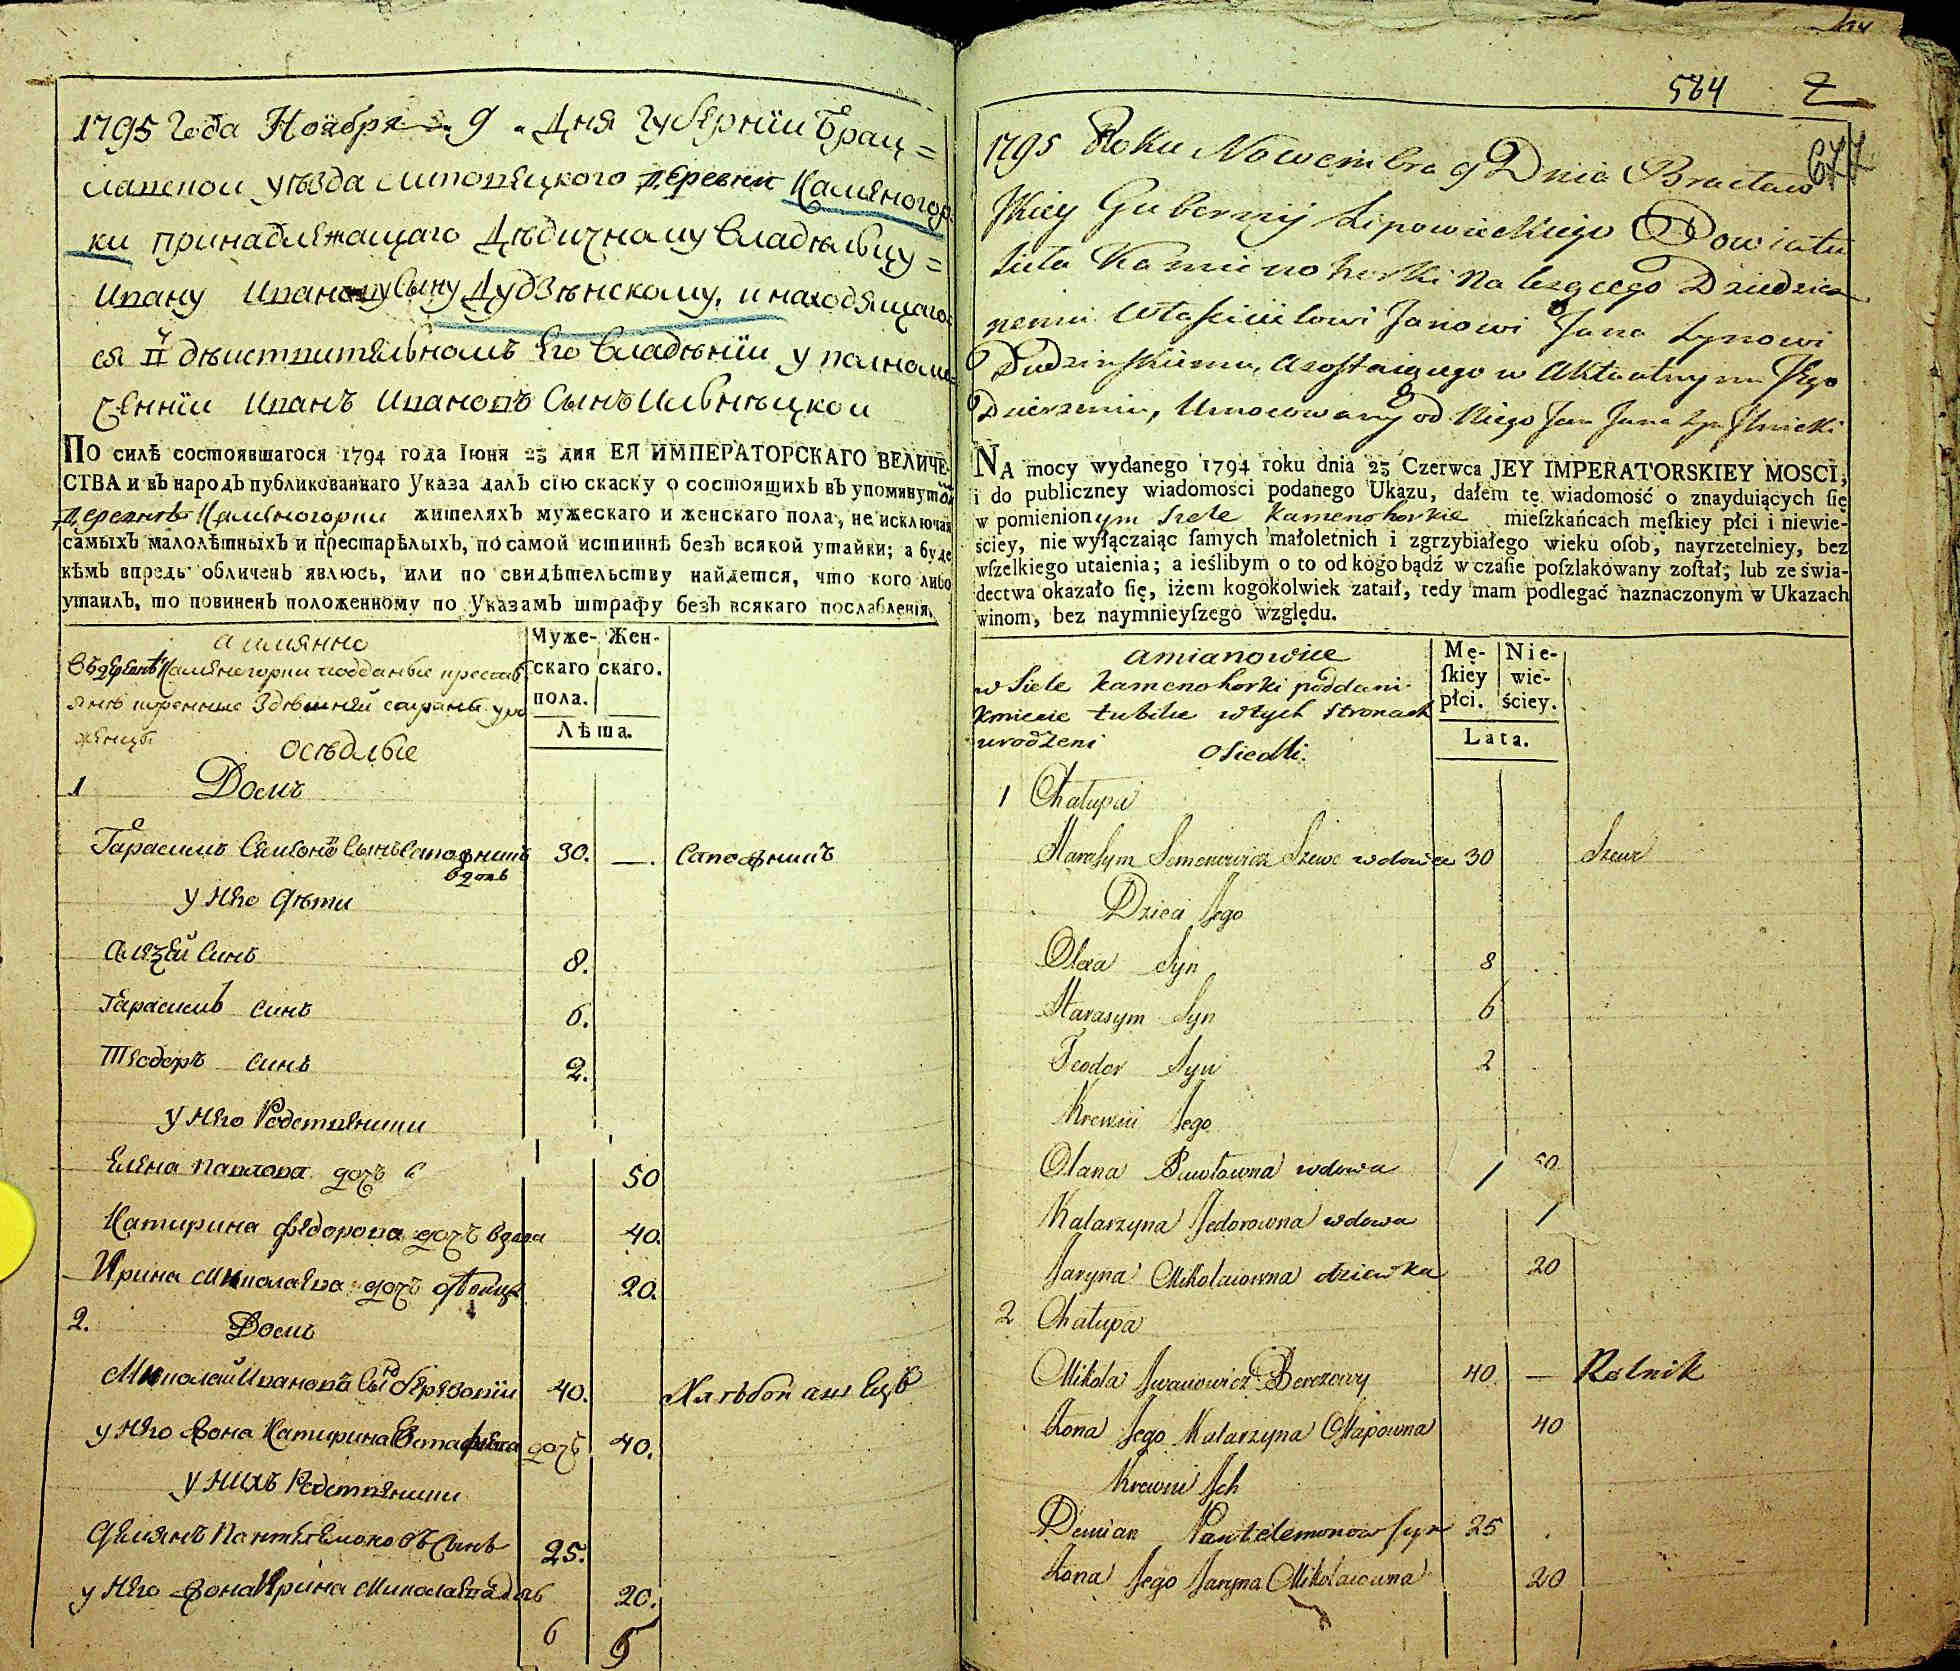 1795 Года Ноября 9 Дня Губернїи Брац=
лавской уезда Липовецкого деревни Каменогор
ки принадлежащаго Дѣдичному Владѣльцу=
Ивану Иванову Сыну Дудзѣнскому, и находящаго
ся в дѣиствительномъ Его Владѣнїи у полномо
ченнїи Иванъ Ивановъ Сынъ Ильницкои
По силѣ состоявшагося 1794 года Іюня 23 дня ЕЯ ИМПЕРАТОРСКАГО ВЕЛИЧЕ-
СТВА и въ народъ публикованнаго Указа далъ сію скаску о состоящихъ въ упомянутой
деревнѣ Каменогорки жителяхъ мужескаго и женскаго пола, не исключая
самыхъ малолѣтныхъ и престарѣлыхъ, по самой истиннѣ безъ всякой утайки; а буде
кѣмъ впредь обличенъ явлюсь, или по свидѣтельству найдется, что кого либо
утаилъ, то повиненъ положенному по Указамъ штрафу безъ всякаго послабленія,
а имянно
Въ деревнѣ Каменогорки подданые крестья
янѣ коренные Здѣшнѣй стране уро
женцы
осѣдлые
Муже-скаго пола. Жен-скаго.
Лѣта.
1 Домъ
Гарасимъ Семеновъ Сынъ Сапожникъ вдовъ 30. —. Сапожникъ
у Него дѣти
Алеѯей Синъ 8.
Гарасимъ Синъ 6.
Теодоръ Синъ 2.
у Него Родственики
Елена Павлова дочь 50
Катирина Федорова дочь вдова 40.
Ирина Миколаева дочь девица 20.
2. Домъ
Миколай Ивановъ Сынъ Березовїи 40. Хлѣбопашецъ
у Него Жона Катирина Остафиева дочь 40.
у Нихъ Родственики
Демянъ Пантелемоновъ Сынъ 25.
у Него Жона Ирина Миколаева дочь 20.
6 5
584 2
677
1795 Roku Nowembra 9 Dnia Bracław
skiey Gubernij Lipowieckiego Powiatu
sieła Kamienohorki Należącego Dziedzicz
nemu Właścicielowi Janowi Jana Synowi
Dudzinskiemu, a zostaiącego w Aktualnym Jego
Dzierzeniu, Umocowany od Niego Jan Jana Syn Ilnicki
NA mocy wydanego 1794 roku dnia 23 Czerwca JEY IMPERATORSKIEY MOSCI,
i do publiczney wiadomości podanego Ukazu, dałem tę wiadomość o znayduiących ſię
w pomienionym Siele Kamenohorkie mieſzkańcach męſkiey płci i niewie-
ściey, nie wyłączaiąc ſamych małoletnich i zgrzybiałego wieku oſob, nayrzetelniey, bez
wſzelkiego utaienia; a ieślibym o to od kogo bądź w czaſie poſzlakowany zoſtał; lub ze świa-
dectwa okazało ſię, iżem kogokolwiek zataił, tedy mam podlegać naznaczonym w Ukazach
winom, bez naymnieyſzego względu.
amianowicie
w Siele Kamenohorki poddani
Kmiecie Ludzie w tych Stronach
urodzeni
Osiedli.
Mę-ſkiey płci. Nie-wie-ściey.
Lata.
1 Chałupa
Harasym Semenowicz Szewc wdowiec 30 Szewc
Dzieci Jego
Olexa Syn 8
Harasym Syn 6
Teodor Syn 2
Krewni Jego
Olana Pawłowna wdowa 50
Katarzyna Fedorowna wdowa
Jaryna Mikołaiowna dziewka 20
2 Chałupa
Mikoła Iwanowicz Berezowy 40 — Rolnik
Żona Jego Katarzyna Ostapowna 40
Krewni Ich
Demian Pantelemonow syn 25
Żona Jego Jaryna Mikołaiowna 20